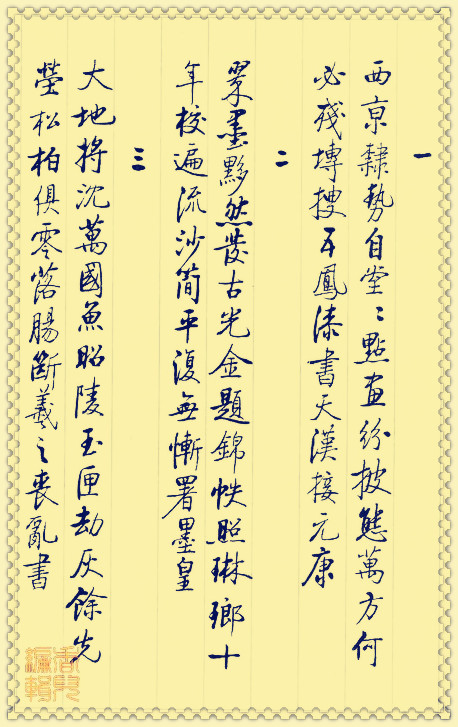 一
西亰隸勢自堂〻點畫紛披態萬方何
必殘塼搜五鳳漆書天漢接元康
二
翠墨黟然發古光金題錦帙照琳瑯十
年校遍流沙簡平復無慚署墨皇
三
大地將沈萬國魚昭陵玉匣劫灰餘先
塋松柏俱零落腸斷羲之喪亂書